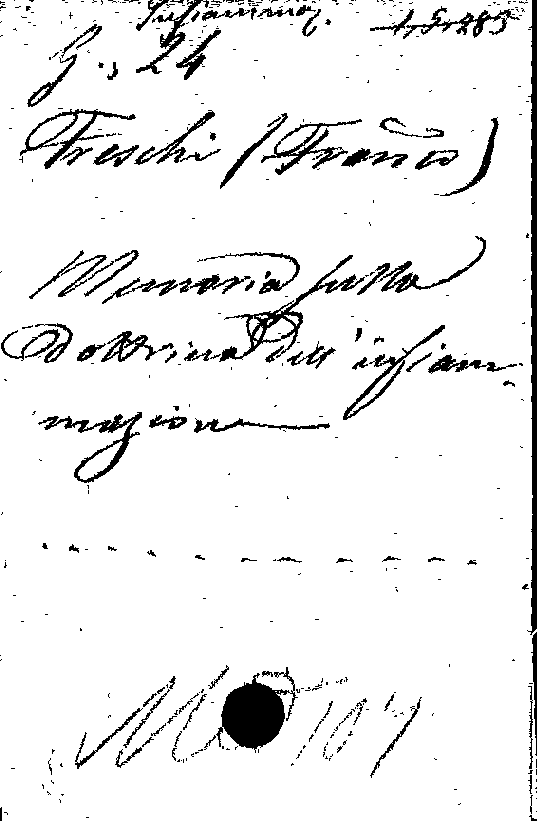 Infiammaz.
G., 24
Freschi (Franco)
Memoria sulla
Dottrina dell'infiam-
mazione
107